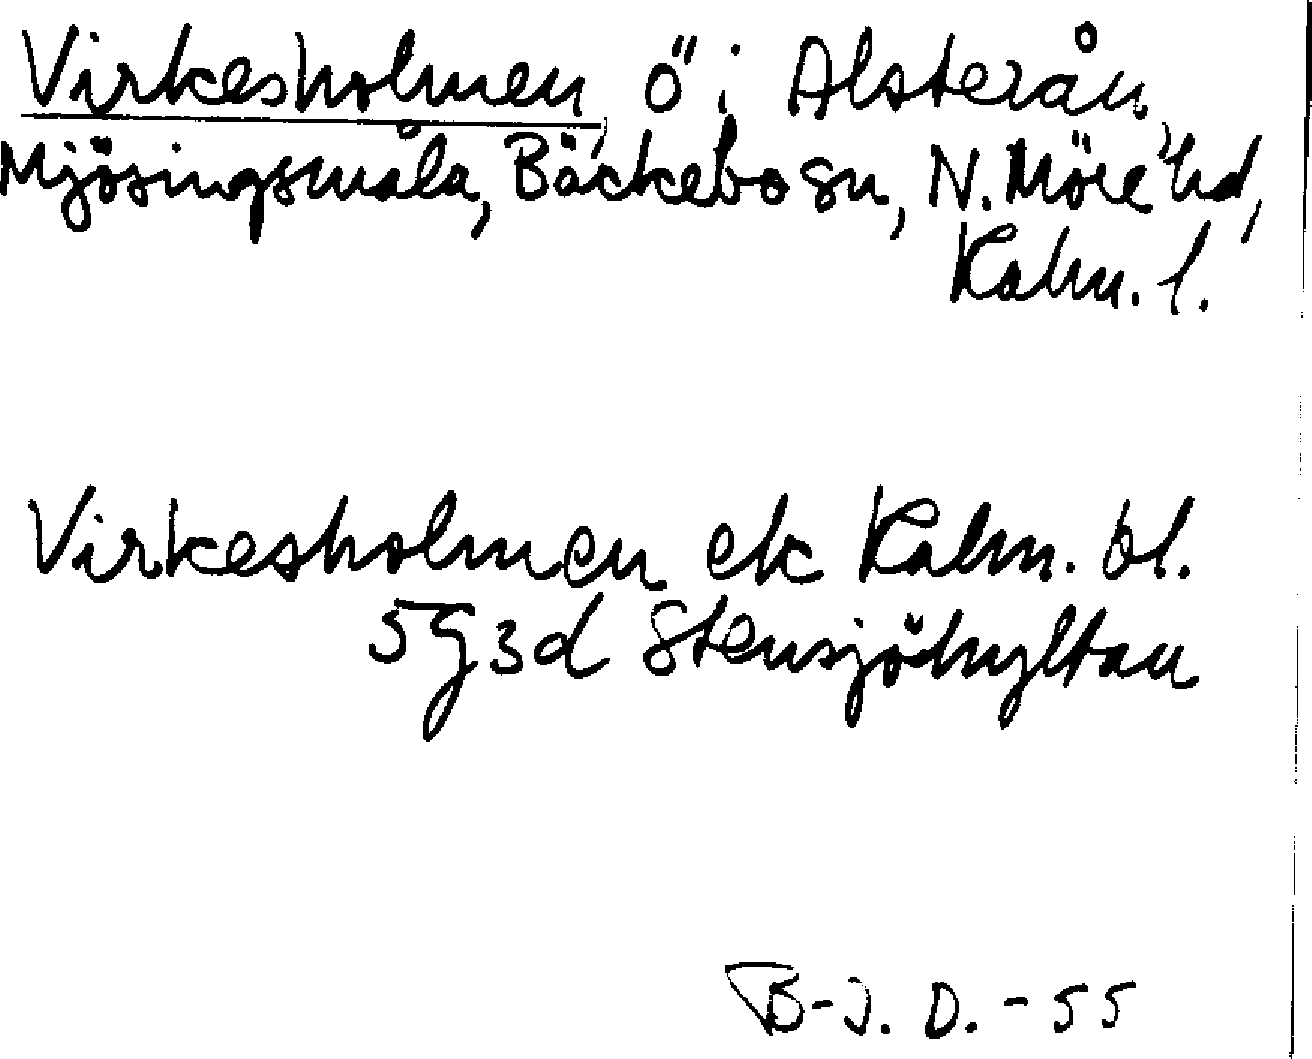 Virkesholmen, ö i Alsterån,
Mjösingsmåla, Bäckebo sn, N. Möre hd,
Kalm. l.
Virkesholmen ek Kalm. bl.
5G3d Stensjöhyltan
B-J. D. - 55